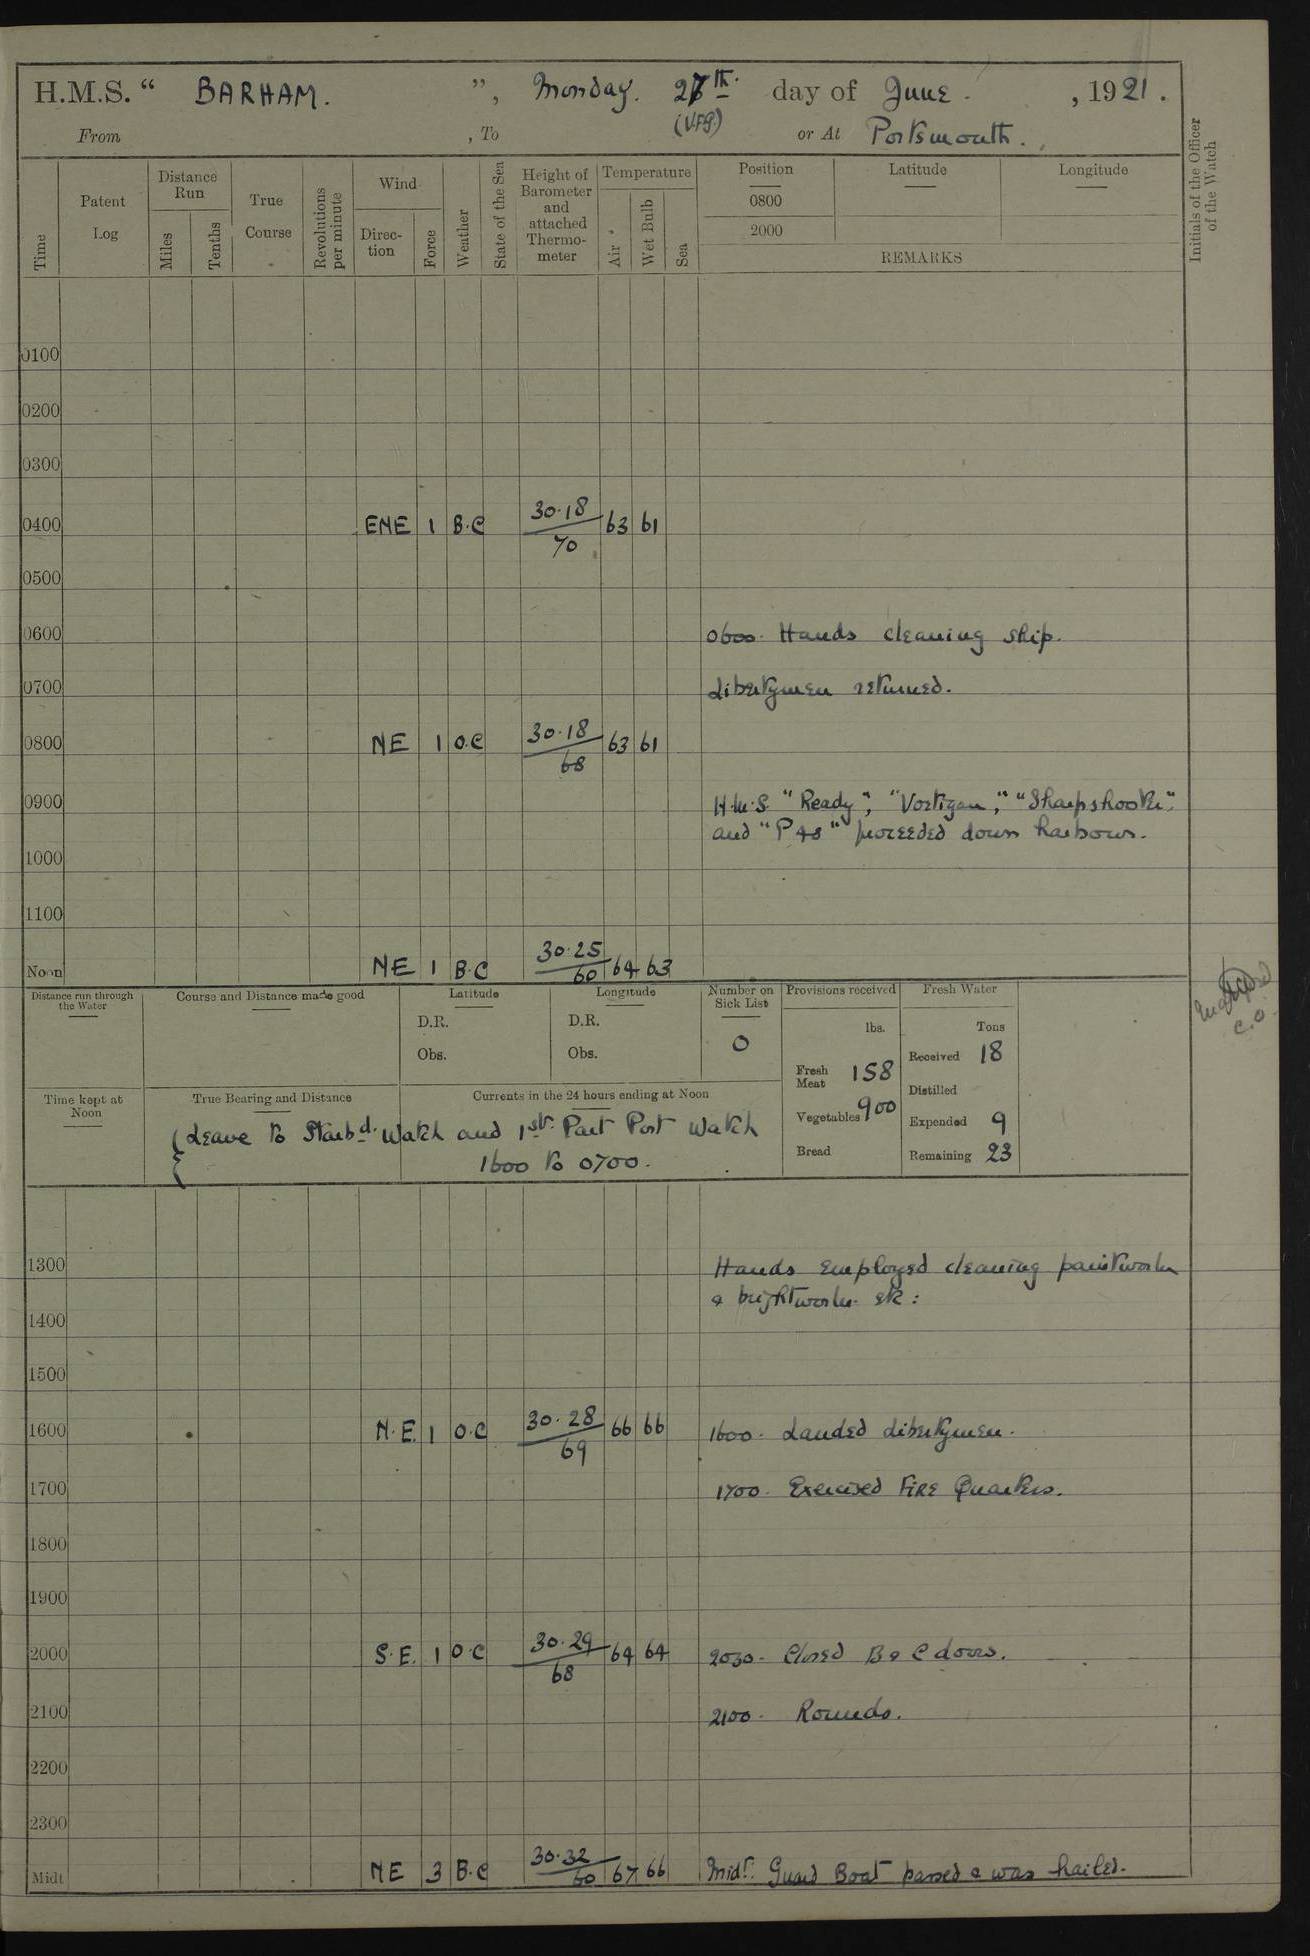 H.M.S. " BARHAM. ", Monday. 27th. day of June. , 1921.
From , To (V.F.G.) or At Portsmouth.
Time
Patent Log
Distance Run
Miles
Tenths
True Course
Revolutions per minute
Wind
Direc-tion
Force
Weather
State of the Sea
Height of Barometer and attached Thermo-meter
Temperature
Air
Wet Bulb
Sea
Position Latitude Longitude
0800
2000
REMARKS
Initials of the Officer of the Watch
0100
0200
0300
0400 ENE 1 B.C 30.18/70 63 61
0500
0600 0600. Hands cleaning ship.
0700 Libertymen returned.
0800 NE 1 O.C 30.18/68 63 61
0900 H.M.S. "Ready", "Vortigan", "Sharpshooter",
and "P 48" proceeded down harbour.
1000
1100
Noon NE 1 B.C 30.25/60 64 63
Distance run through the Water
Course and Distance made good
Latitude
D.R.
Obs.
Longitude
D.R.
Obs.
Number on Sick List
0
Provisions received
lbs.
Fresh Meat 158
Vegetables 900
Bread
Fresh Water
Tons
Received 18
Distilled
Expended 9
Remaining 23
C.O.
Time kept at Noon
True Bearing and Distance
Currents in the 24 hours ending at Noon
Leave to Starbd. Watch and 1st Part Port Watch
1600 to 0700.
1300 Hands employed cleaning paintwork
& brightwork etc:
1400
1500
1600 N.E. 1 O.C 30.28/69 66 66 1600. Landed libertymen.
1700 1700. Exercised FIRE Quarters.
1800
1900
2000 S.E. 1 O.C 30.29/68 64 64 2030. Closed B & C doors.
2100 2100. Rounds.
2200
2300
Midt NE 3 B.C 30.32/60 67 66 Midt. Guard Boat passed & was hailed.